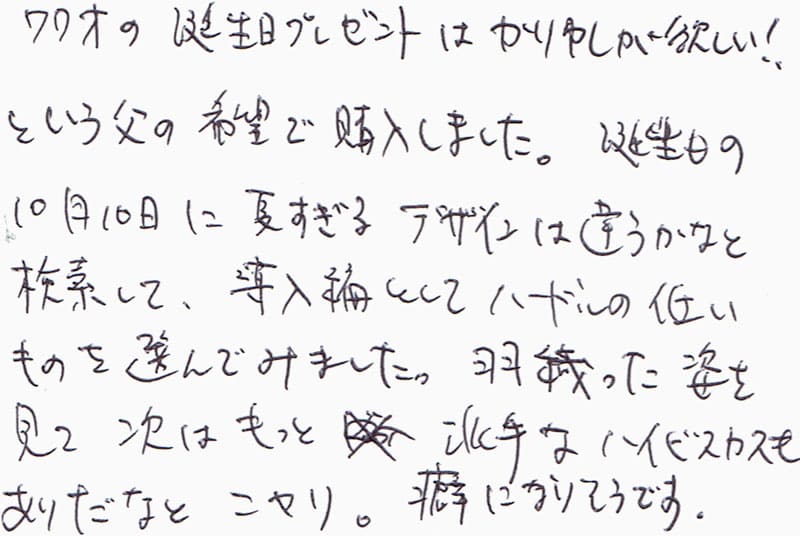 ワワオの誕生日プレゼントはかりゆしが欲しい!
という父の希望で購入しました。誕生日の
10月10日に夏すぎるデザインは違うかなと
検索して、導入編としてハードルの低い
ものを選んでみました。羽織った姿を
見て次はもっと派手なハイビスカスも
ありだなとニヤリ。癖になりそうです.